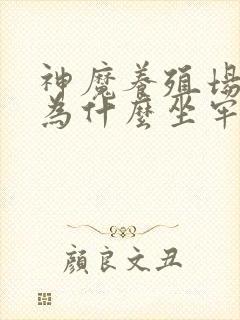 神魔養殖場
為什麼坐牢
顏良文丑